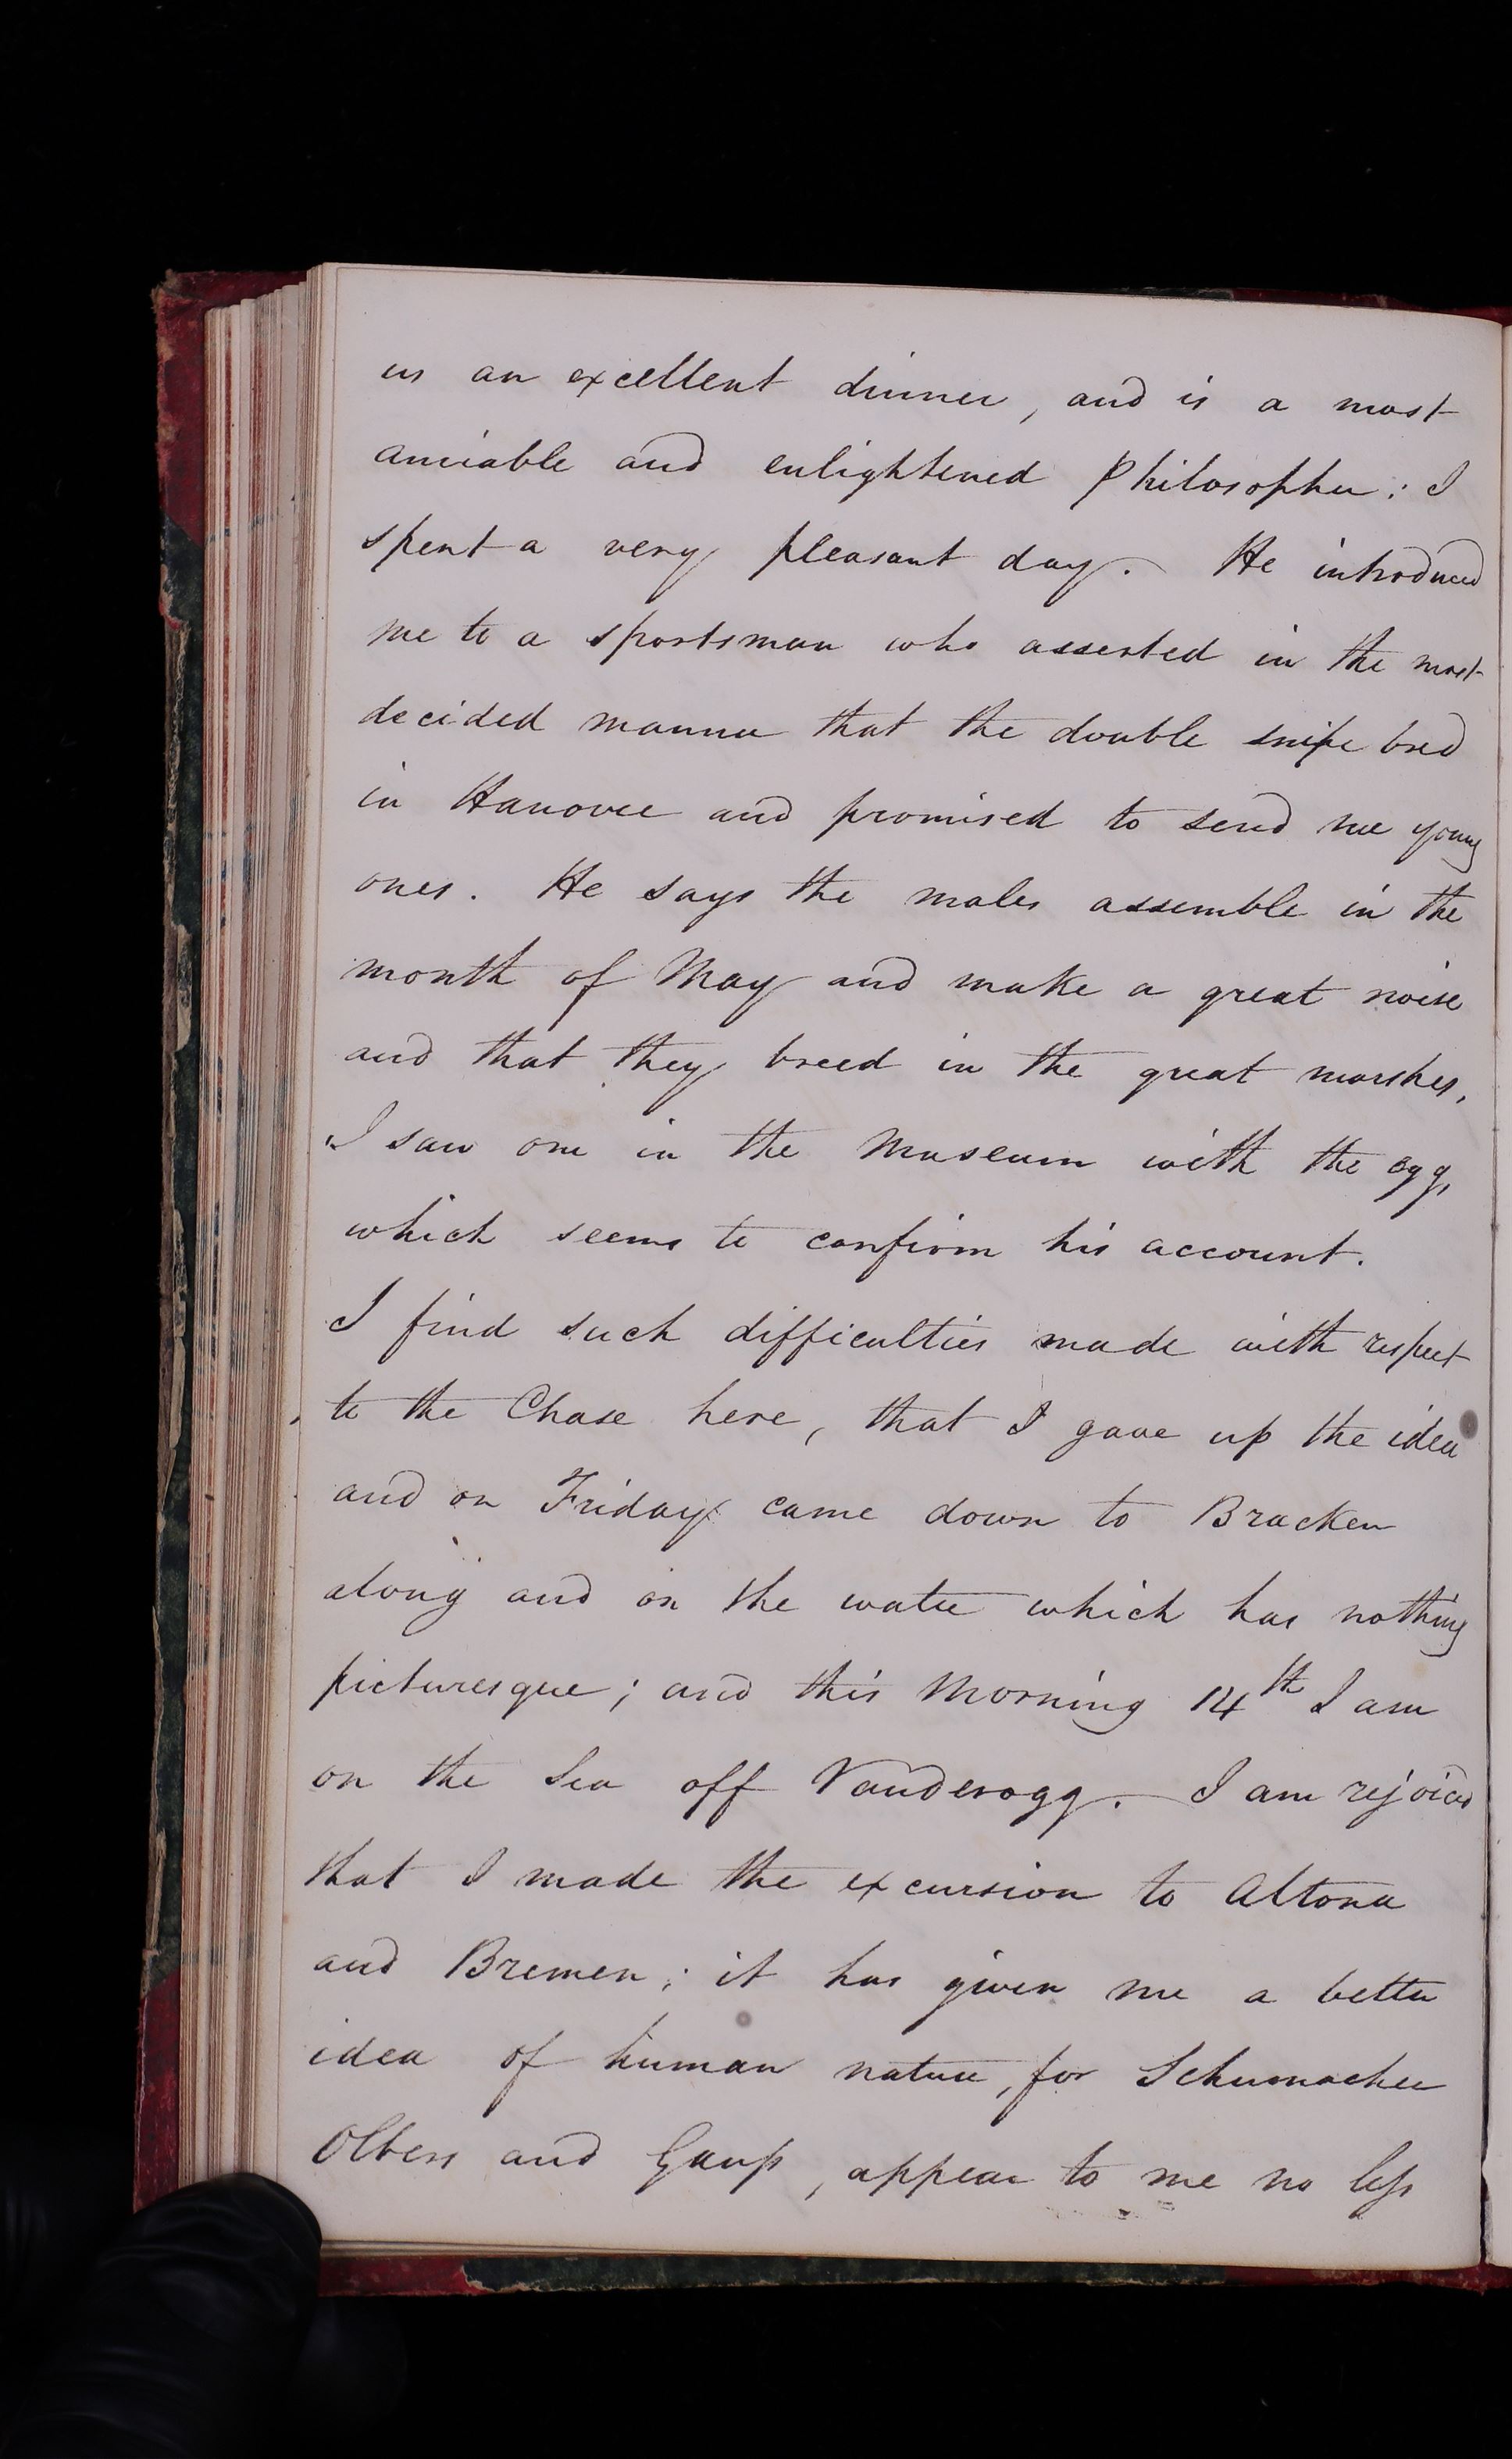 us an excellent dinner, and is a most
amiable and enlightened Philosopher: I
spent a very pleasant day. He introduced
me to a sportsman who asserted in the most
decided manner that the double snipe bred
in Hanover and promised to send me young
ones. He says the males assemble in the
month of May and make a great noise
and that they breed in the great marshes.
I saw one in the Museum with the egg,
which seems to confirm his account.
I find such difficulties made with respect
to the Chase here, that I gave up the idea
and on Friday came down to Bracken
along and on the water which has nothing
picturesque; and this Morning 14th I am
on the Sea off Vanderogg. I am rejoiced
that I made the excursion to Altona
and Bremen; it has given me a better
idea of human nature, for Schumacher
Olbers and Gauſs, appear to me no leſs